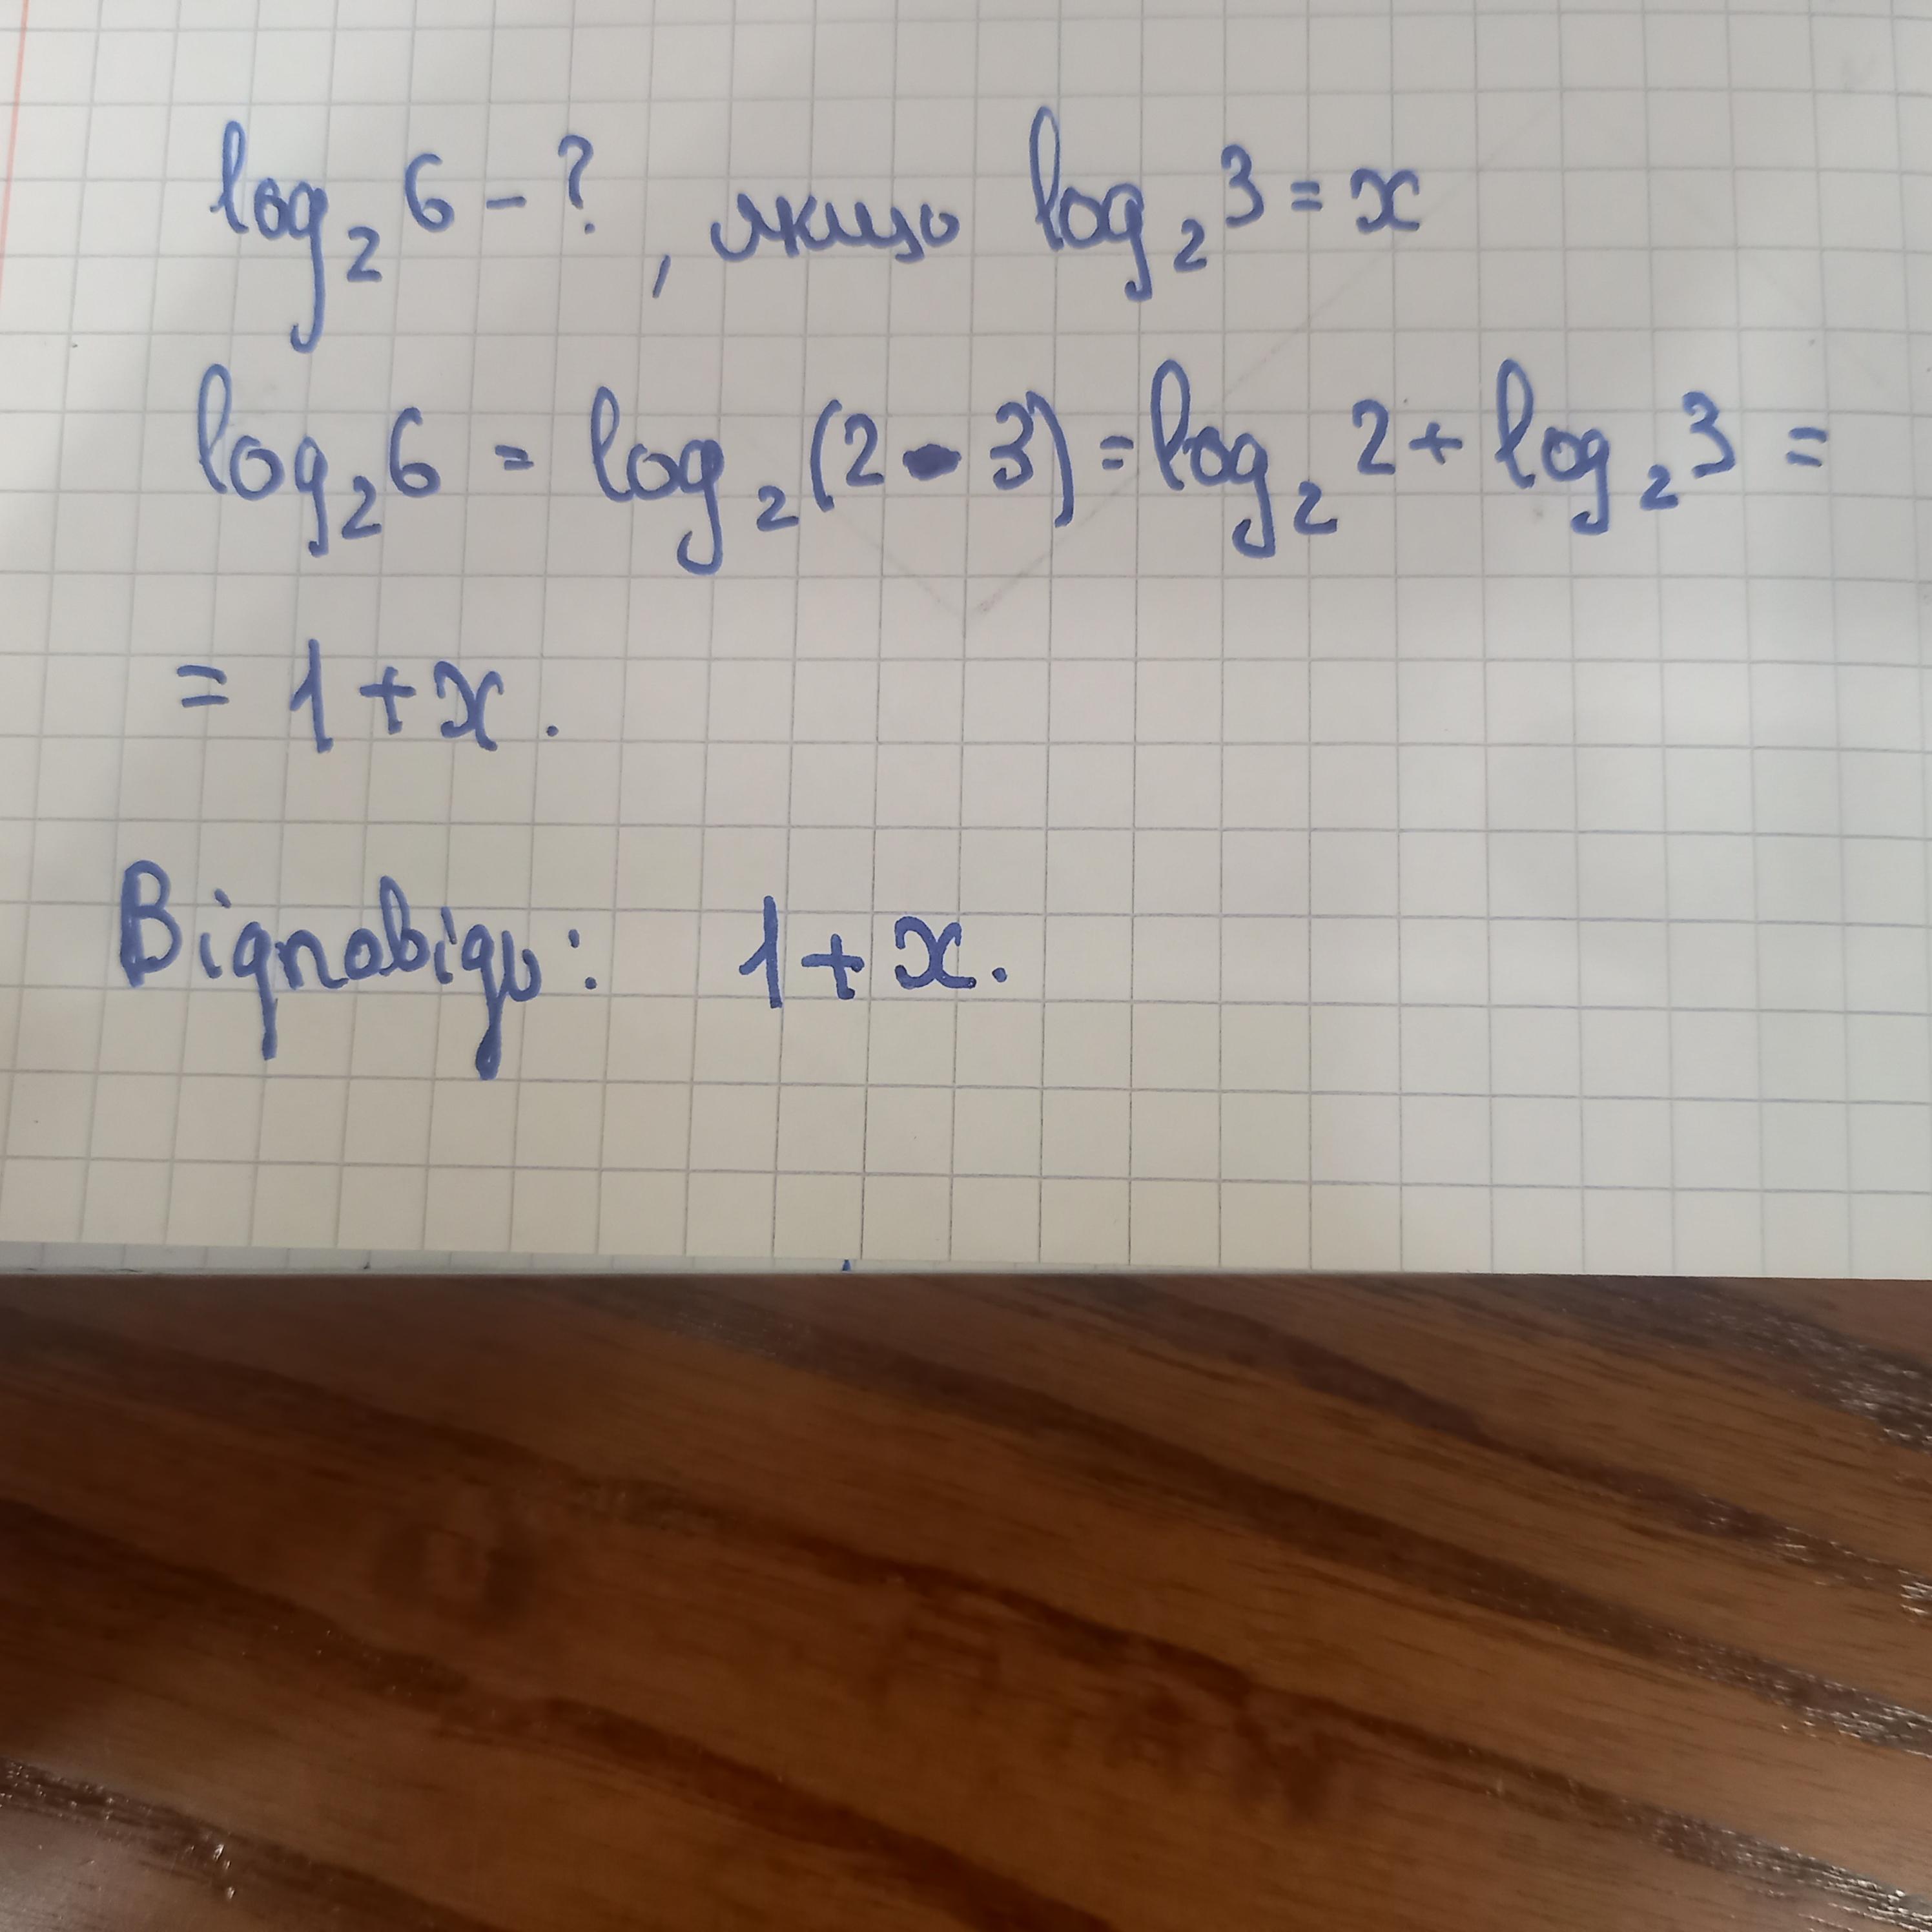 log₂6 - ?, якщо log₂3 = x
log₂6 = log₂(2 · 3) = log₂2 + log₂3 =
= 1 + x.
Відповідь: 1 + x.